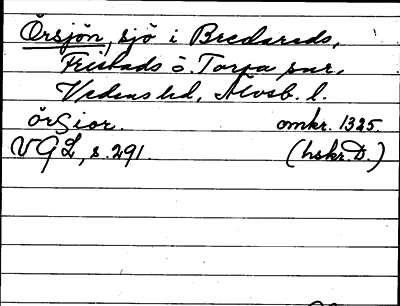 Örsjön, sjö i Bredareds,
Fristads o. Torpa snr,
Vedens hd, Älvsb. l.
örsior. omkr. 1325.
VGL, s. 291. (hskr. D.)